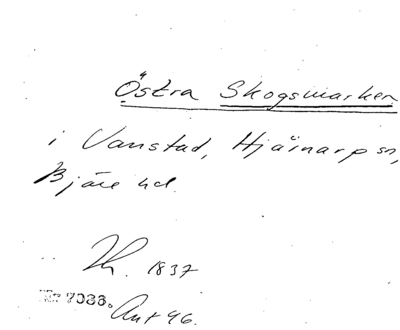 Östra Skogsmarken
i Vanstad, Hjärnarp sn,
Bjäre hd.
1837
7088. Ant 46.